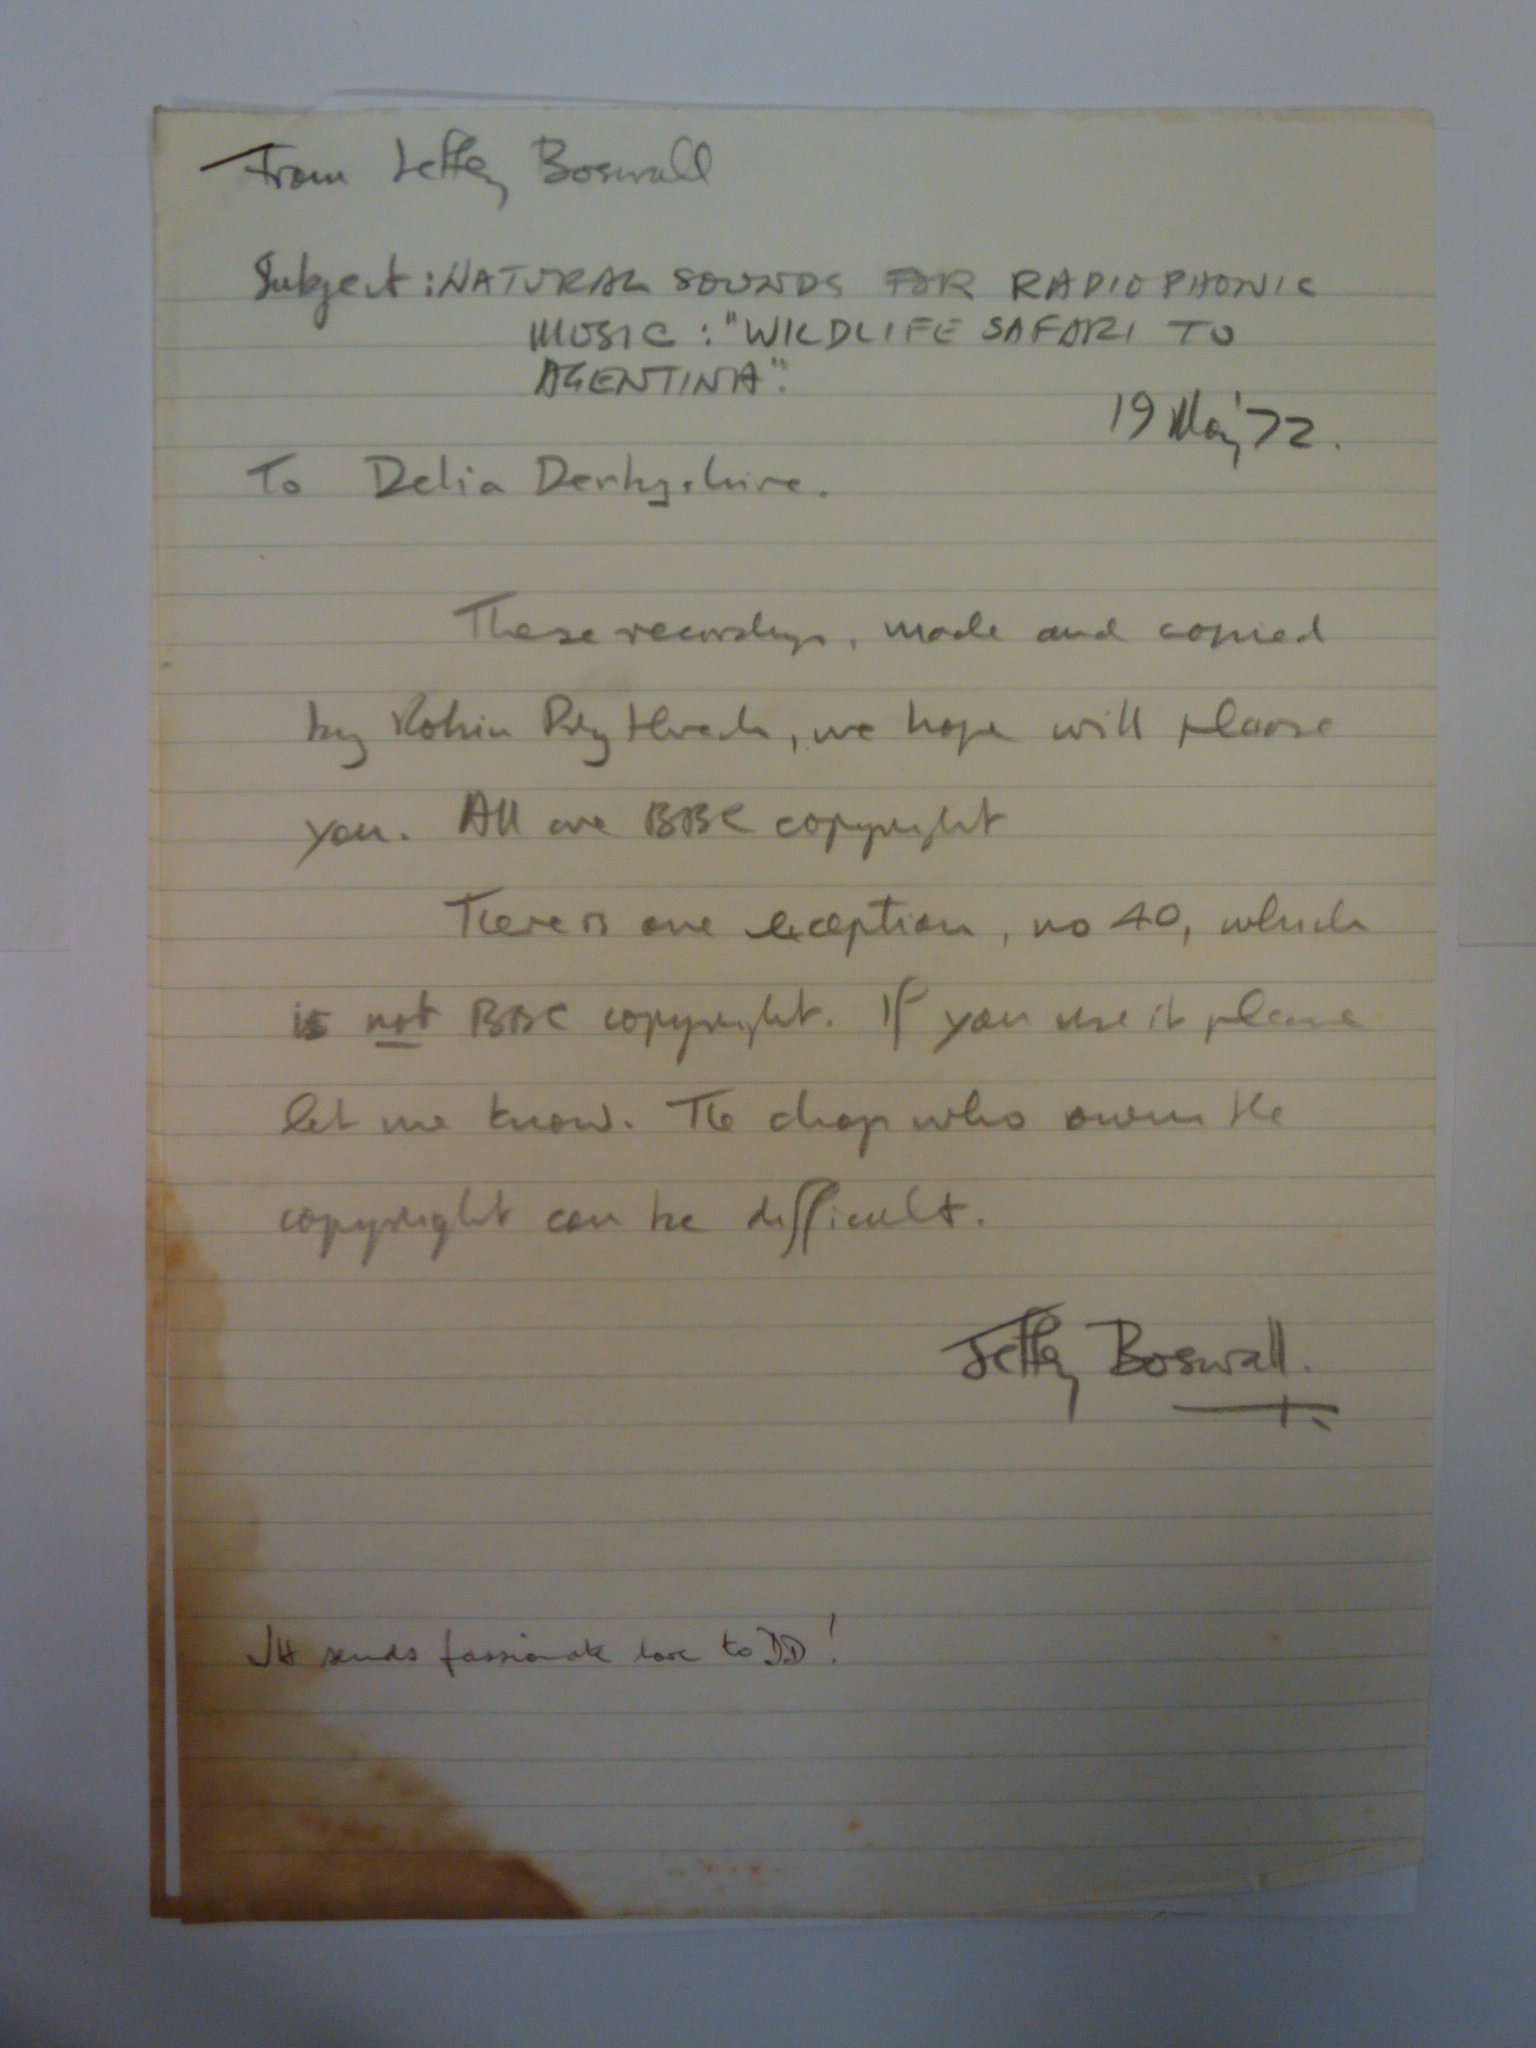 From Jeffery Boswall
Subject: NATURAL SOUNDS FOR RADIOPHONIC
MUSIC: "WILDLIFE SAFARI TO
AGENTINA".
19 May '72.
To Delia Derbyshire.
These recordings, made and copied
by Robin Prytherch, we hope will please
you. All are BBC copyright
There is one exception, no 40, which
is not BBC copyright. If you use it please
let me know. The chap who owns the
copyright can be difficult.
Jeffery Boswall.
JH sends passionate love to DD!